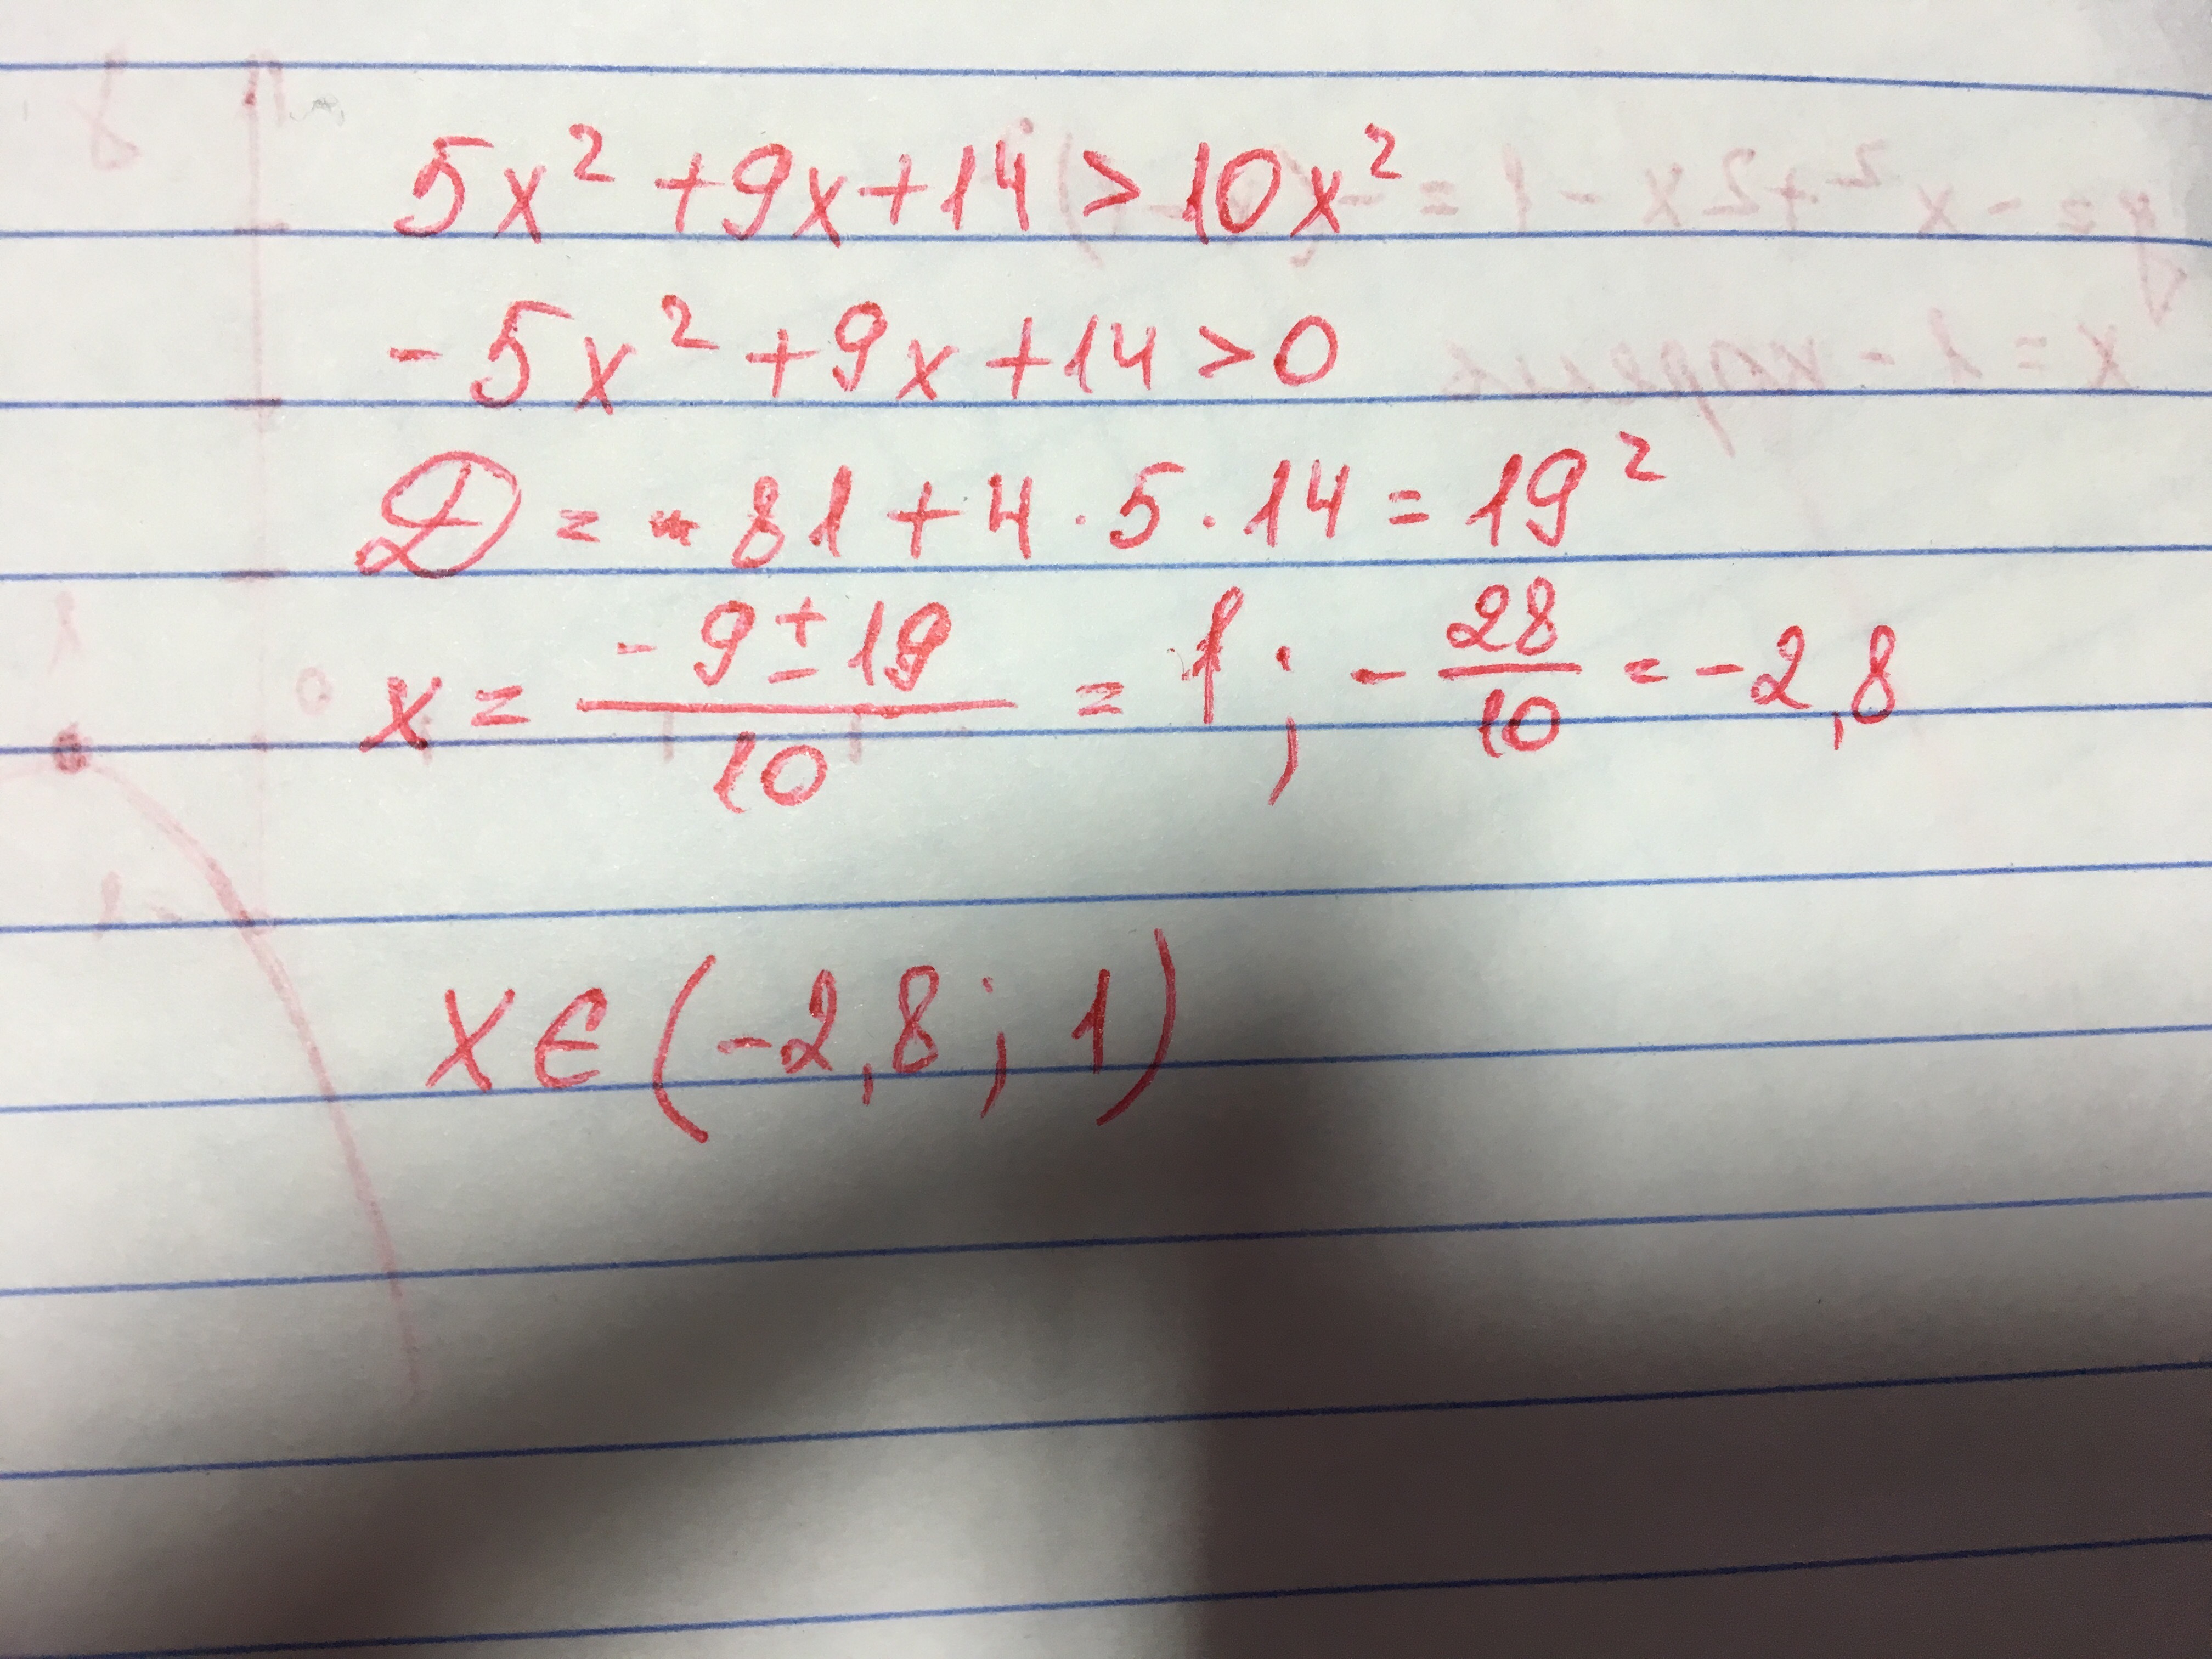 5x² + 9x + 14 > 10x²
- 5x² + 9x + 14 > 0
D = - 81 + 4 · 5 · 14 = 19²
x = (-9 ± 19)/10 = 1 ; - 28/10 = -2,8
x ∈ (-2,8 ; 1)